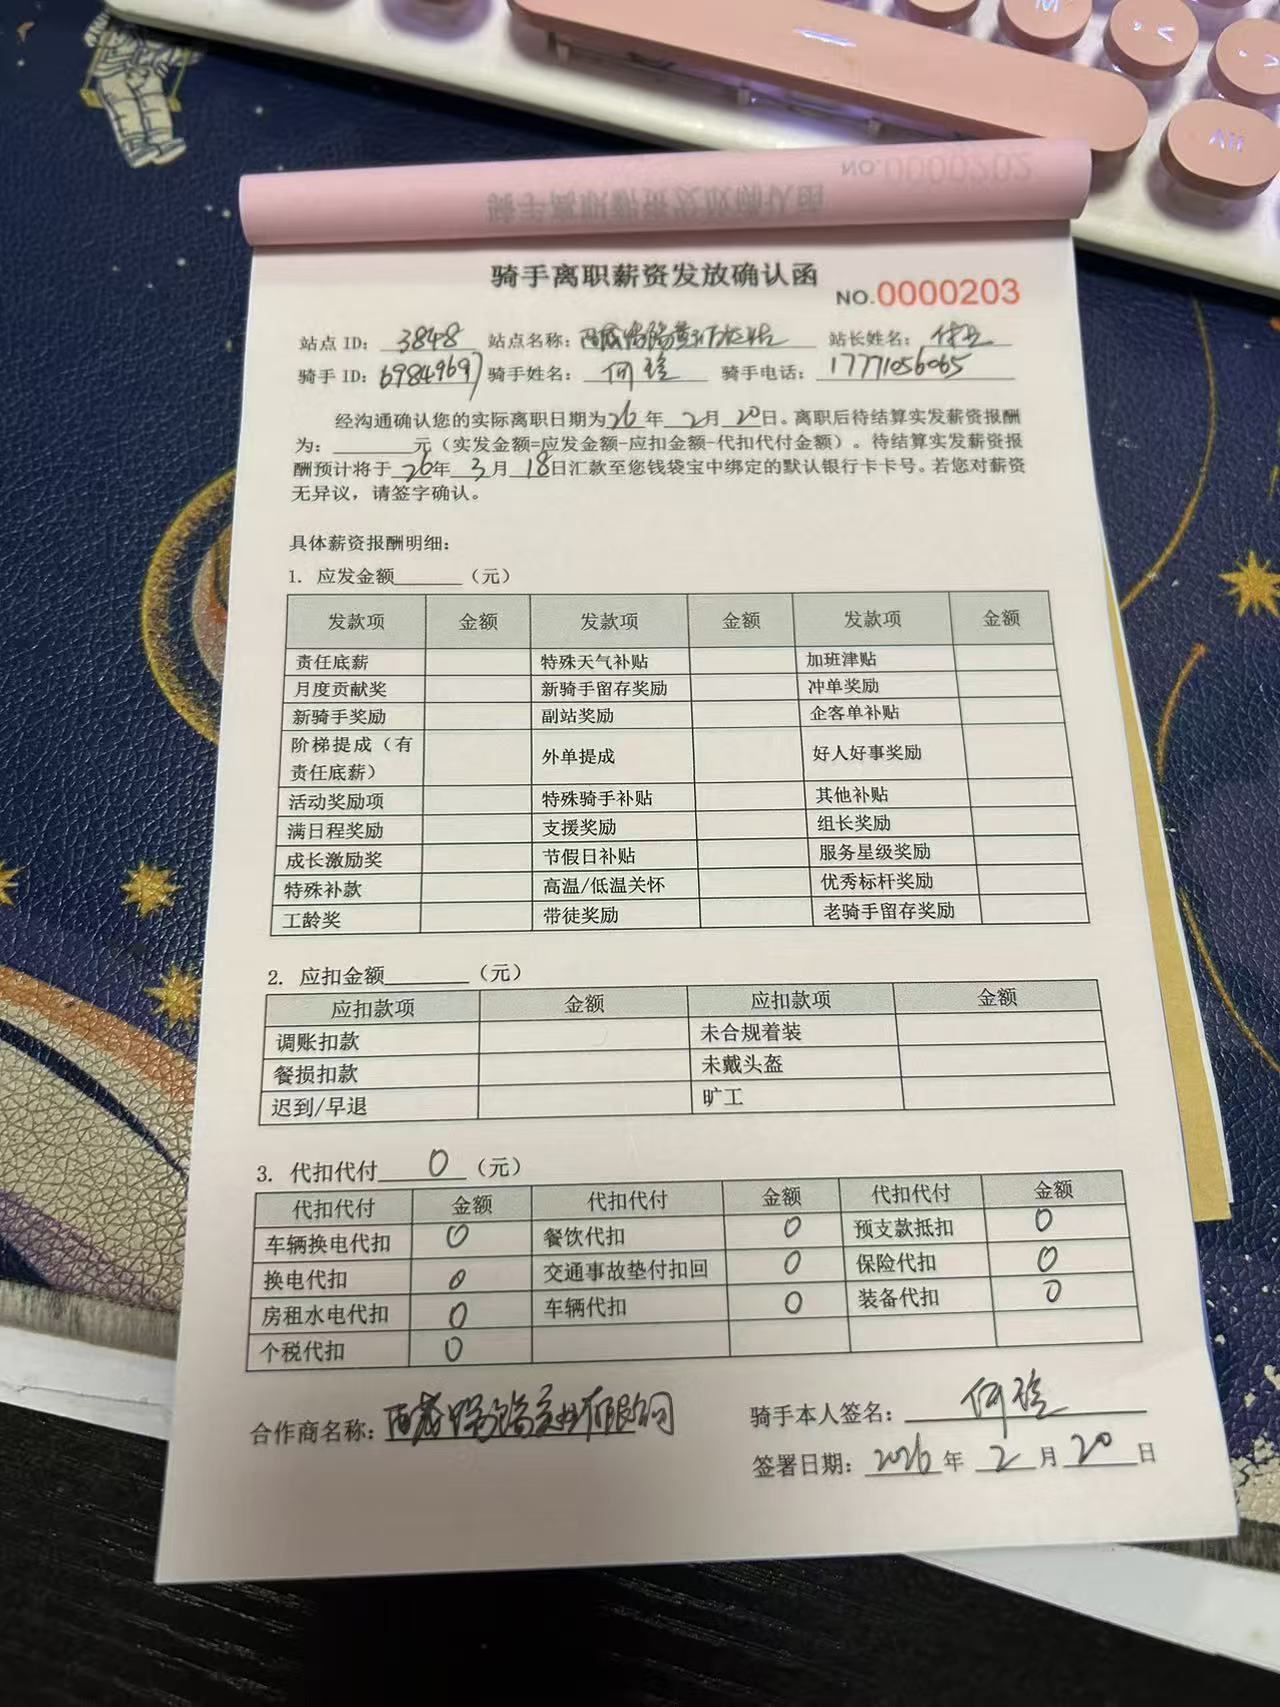 NO.0000202
骑手离职薪资发放确认函
骑手离职薪资发放确认函
NO.0000203
站点 ID: 3848 站点名称: 站长姓名:
骑手 ID: 6984969 骑手姓名: 何 骑手电话: 17771056065
经沟通确认您的实际离职日期为26年2月20日。离职后待结算实发薪资报酬
为: 元（实发金额=应发金额-应扣金额-代扣代付金额）。待结算实发薪资报
酬预计将于26年3月18日汇款至您钱袋宝中绑定的默认银行卡卡号。若您对薪资
无异议，请签字确认。
具体薪资报酬明细:
1. 应发金额 （元）
发款项 金额 发款项 金额 发款项 金额
责任底薪 特殊天气补贴 加班津贴
月度贡献奖 新骑手留存奖励 冲单奖励
新骑手奖励 副站奖励 企客单补贴
阶梯提成（有
责任底薪） 外单提成 好人好事奖励
活动奖励项 特殊骑手补贴 其他补贴
满日程奖励 支援奖励 组长奖励
成长激励奖 节假日补贴 服务星级奖励
特殊补款 高温/低温关怀 优秀标杆奖励
工龄奖 带徒奖励 老骑手留存奖励
2. 应扣金额 （元）
应扣款项 金额 应扣款项 金额
调账扣款 未合规着装
餐损扣款 未戴头盔
迟到/早退 旷工
3. 代扣代付 0 （元）
代扣代付 金额 代扣代付 金额 代扣代付 金额
车辆换电代扣 0 餐饮代扣 0 预支款抵扣 0
换电代扣 0 交通事故垫付扣回 0 保险代扣 0
房租水电代扣 0 车辆代扣 0 装备代扣 0
个税代扣 0
合作商名称: 有限公司 骑手本人签名: 何
签署日期: 2026年 2月20日